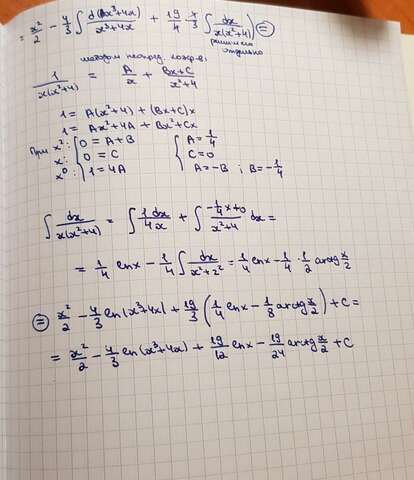 = x²/2 - 4/3 ∫ d(x³+4x)/(x³+4x) + 19/3 ∫ dx/(x(x²+4)) ⊜
решим отдельно
методом неопред. коэф-в:
1/(x(x²+4)) = A/x + (Bx+C)/(x²+4)
1 = A(x²+4) + (Bx+C)x
1 = Ax²+4A + Bx²+Cx
При x²: 0 = A+B
x: 0 = C
x⁰: 1 = 4A
A = 1/4
C = 0
A = -B ; B = -1/4
∫ dx/(x(x²+4)) = ∫ 1/4 dx/x + ∫ (-1/4x+0)/(x²+4) dx =
= 1/4 lnx - 1/4 ∫ dx/(x²+2²) = 1/4 lnx - 1/4 · 1/2 arctg x/2
⊜ x²/2 - 4/3 ln(x³+4x) + 19/3 (1/4 lnx - 1/8 arctg x/2) + C =
= x²/2 - 4/3 ln(x³+4x) + 19/12 lnx - 19/24 arctg x/2 + C